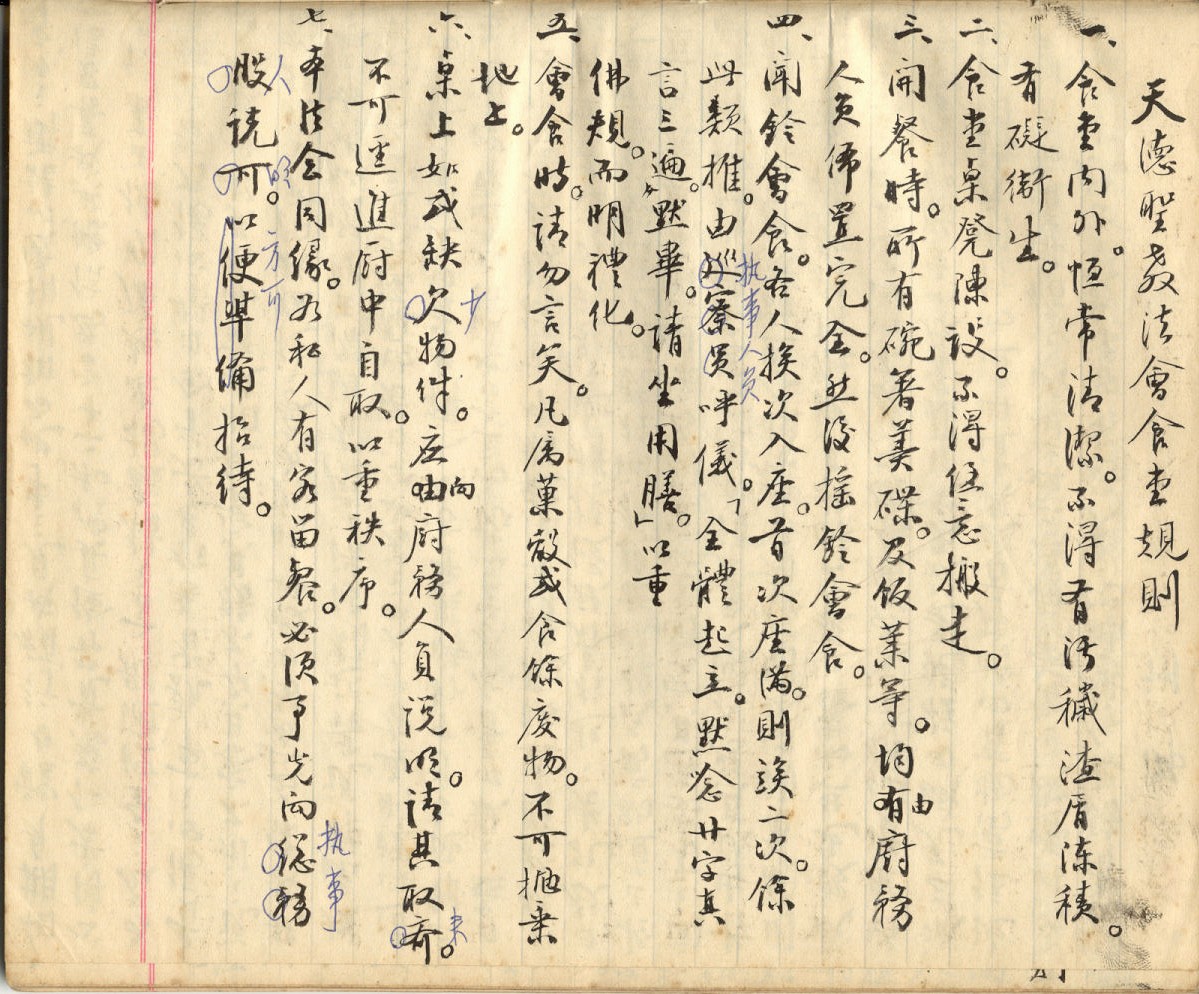 天德聖教法會食堂規則
一、食堂內外。恒常清潔。不得有污穢渣屑涷積。
有礙衛生。
二、食堂桌凳陳設。不得任意搬走。
三、開餐時。所有碗箸羹碟。及飯菜等。均由廚務
人員佈置完全。然後搖鈴會食。
四、聞鈴會食。各人挨次入座。首次座滿。則俟二次。餘
此類推。由巡寮員执事人员呼儀。「全體起立。默唸廿字真
言三遍。默畢。請坐用膳。」以重
佛規。而明禮化。
五、會食時。請勿言笑。凡屬菓殼或食餘廢物。不可拋棄
地上。
六、桌上如或缺欠少物件。应向廚務人員説明。請其取齊来。
不可逕進廚中自取。以重秩序。
七、本法会同缘。为私人有客留餐。必须事先向總務执事
股人説明可。方可以便準備招待。